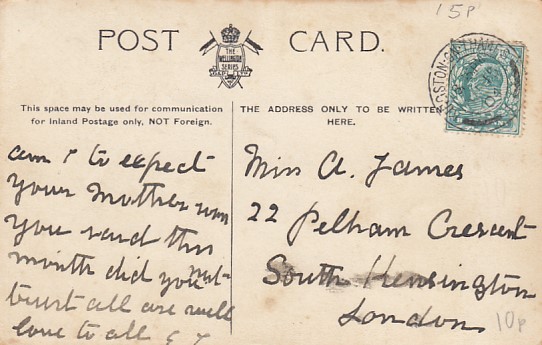 15P
POST CARD.
THE
WELLINGTON
SERIES
This space may be used for communication
for Inland Postage only, NOT Foreign.
THE ADDRESS ONLY TO BE WRITTEN
HERE.
am I to expect
your Mother
you said this
month did you not
trust all are well
love to all
Miss A. James
22 Pelham Crescent
South Kensington
London
10p